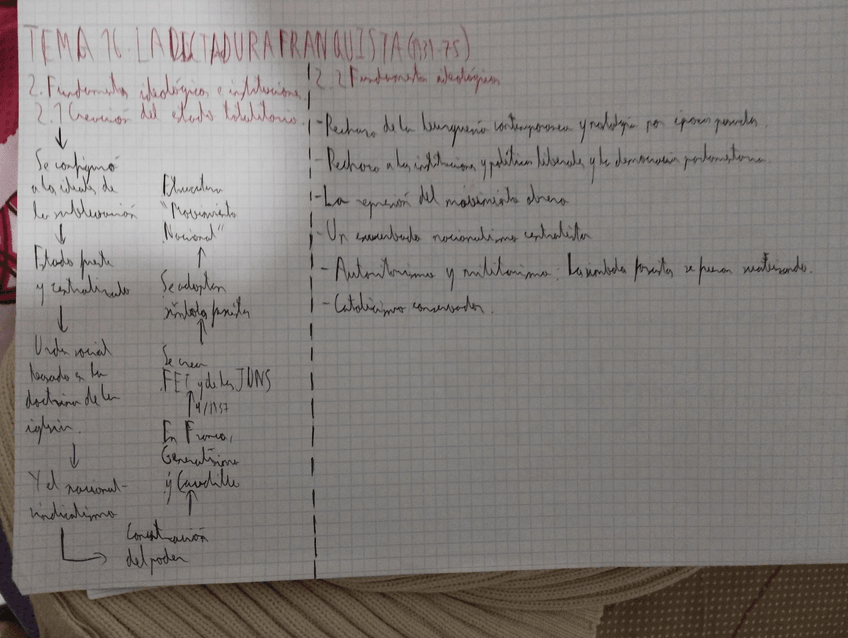 TEMA 16. LA DICTADURA FRANQUISTA (1939-75)
2. Fundamentos ideológicos e institucional
2.1 Creación del estado totalitario.
Se configuró
a los ideales de
la sublevación
Estado fuerte
y centralizado
Orden social
basado en la
doctrina de la
iglesia.
Y el nacional-
sindicalismo
Concentración
del poder
En Franco,
Generalísimo
y Caudillo
4/1937
Se crea
FET y de las JONS
Se adoptan
símbolos fascistas
Estructura
"Movimiento
Nacional"
2.2 Fundamentos ideológicos
- Rechazo de la contemporanea y nostalgia por épocas pasadas.
- Rechazo a las instituciones y políticas liberales y la democracia parlamentaria.
- La represión del movimiento obrero.
- Un exacerbado nacionalismo centralista
- Autoritarismo y militarismo. Los símbolos fascistas se fueron suavizando.
- Catolicismo conservador.